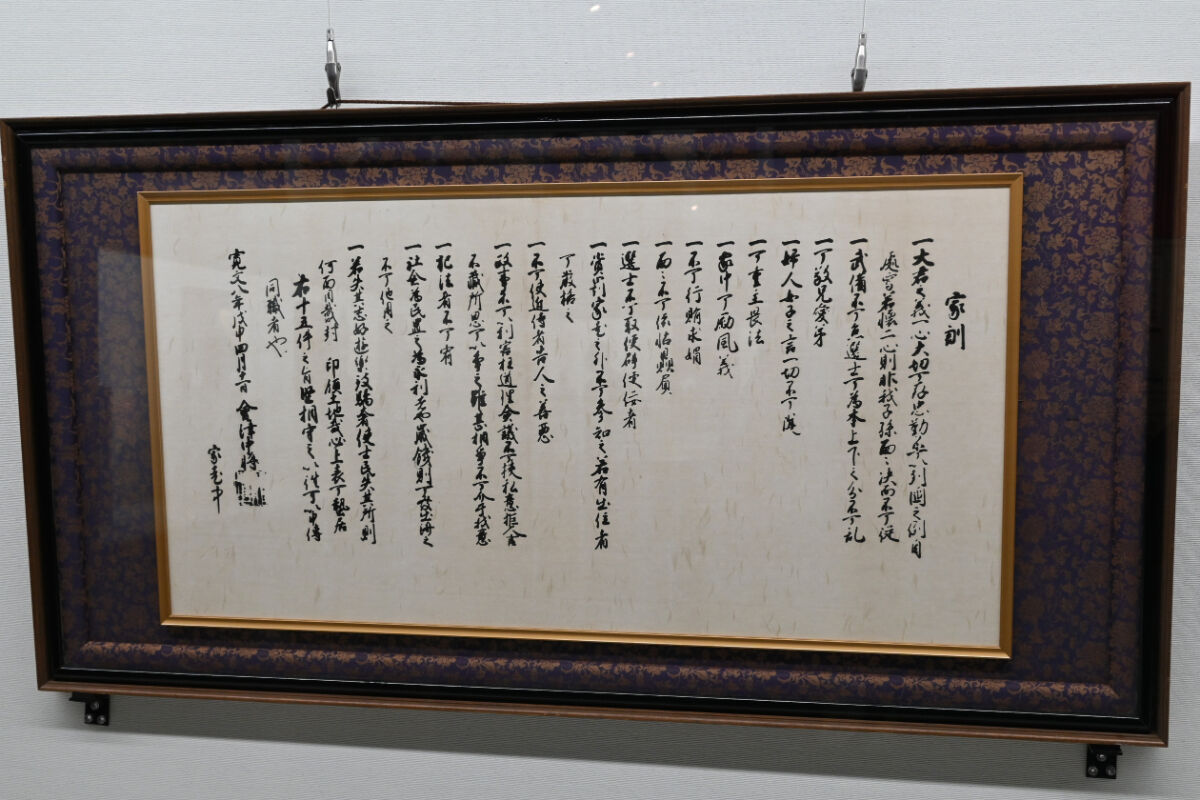 家訓
一大君之義一心大切可存忠勤不可以列國之例自
處焉若懷二心則非我子孫面々決而不可從
一武備不可怠選士可為本上下之分不可乱
一可敬兄愛弟
一婦人女子之言一切不可聞
一可重主畏法
一家中可励風義
一不可行賄求媚
一面々不可依怙贔屓
一選士不可取便辟便佞者
一賞罰家老之外不可参知之若有出位者
可厳格之
一不可使近侍者告人之善悪
一政事不可以利害枉道理僉議不可挟私意拒人言
不蔵所思可以争之雖甚相争不可介于我意
一犯法者不可宥
一社倉為民置之為永利者也歳饑則可發出済之
不可他用之
一若失其志好遊樂致驕奢使士民失其所則
何面目戴封印領土地哉必上表可蟄居
右十五件之旨堅相守之以往可以申傳
同職者也
寛文八年戊申四月十一日 會津中将
家老中